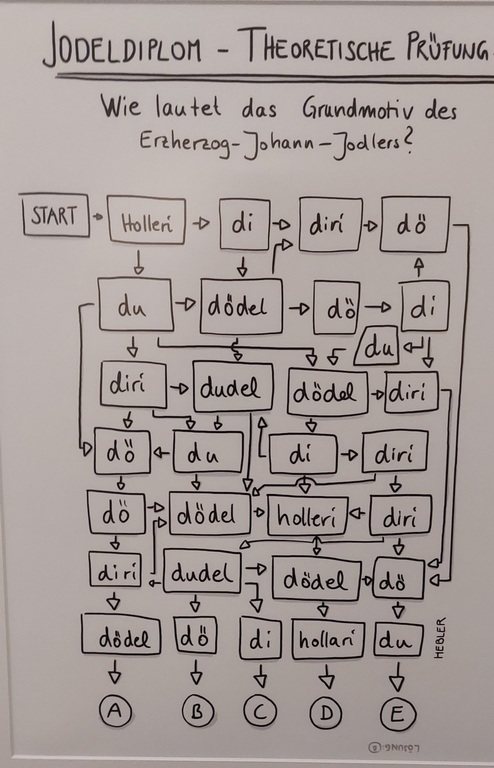 JODELDIPLOM – THEORETISCHE PRÜFUNG
Wie lautet das Grundmotiv des
Erzherzog-Johann-Jodlers?
START Holleri di diri dö
du dödel dö di
du
diri dudel dödel diri
dö du di diri
dö dödel holleri diri
diri dudel dödel dö
dödel dö di hollari du
HEBLER
A B C D E
LÖSUNG: B